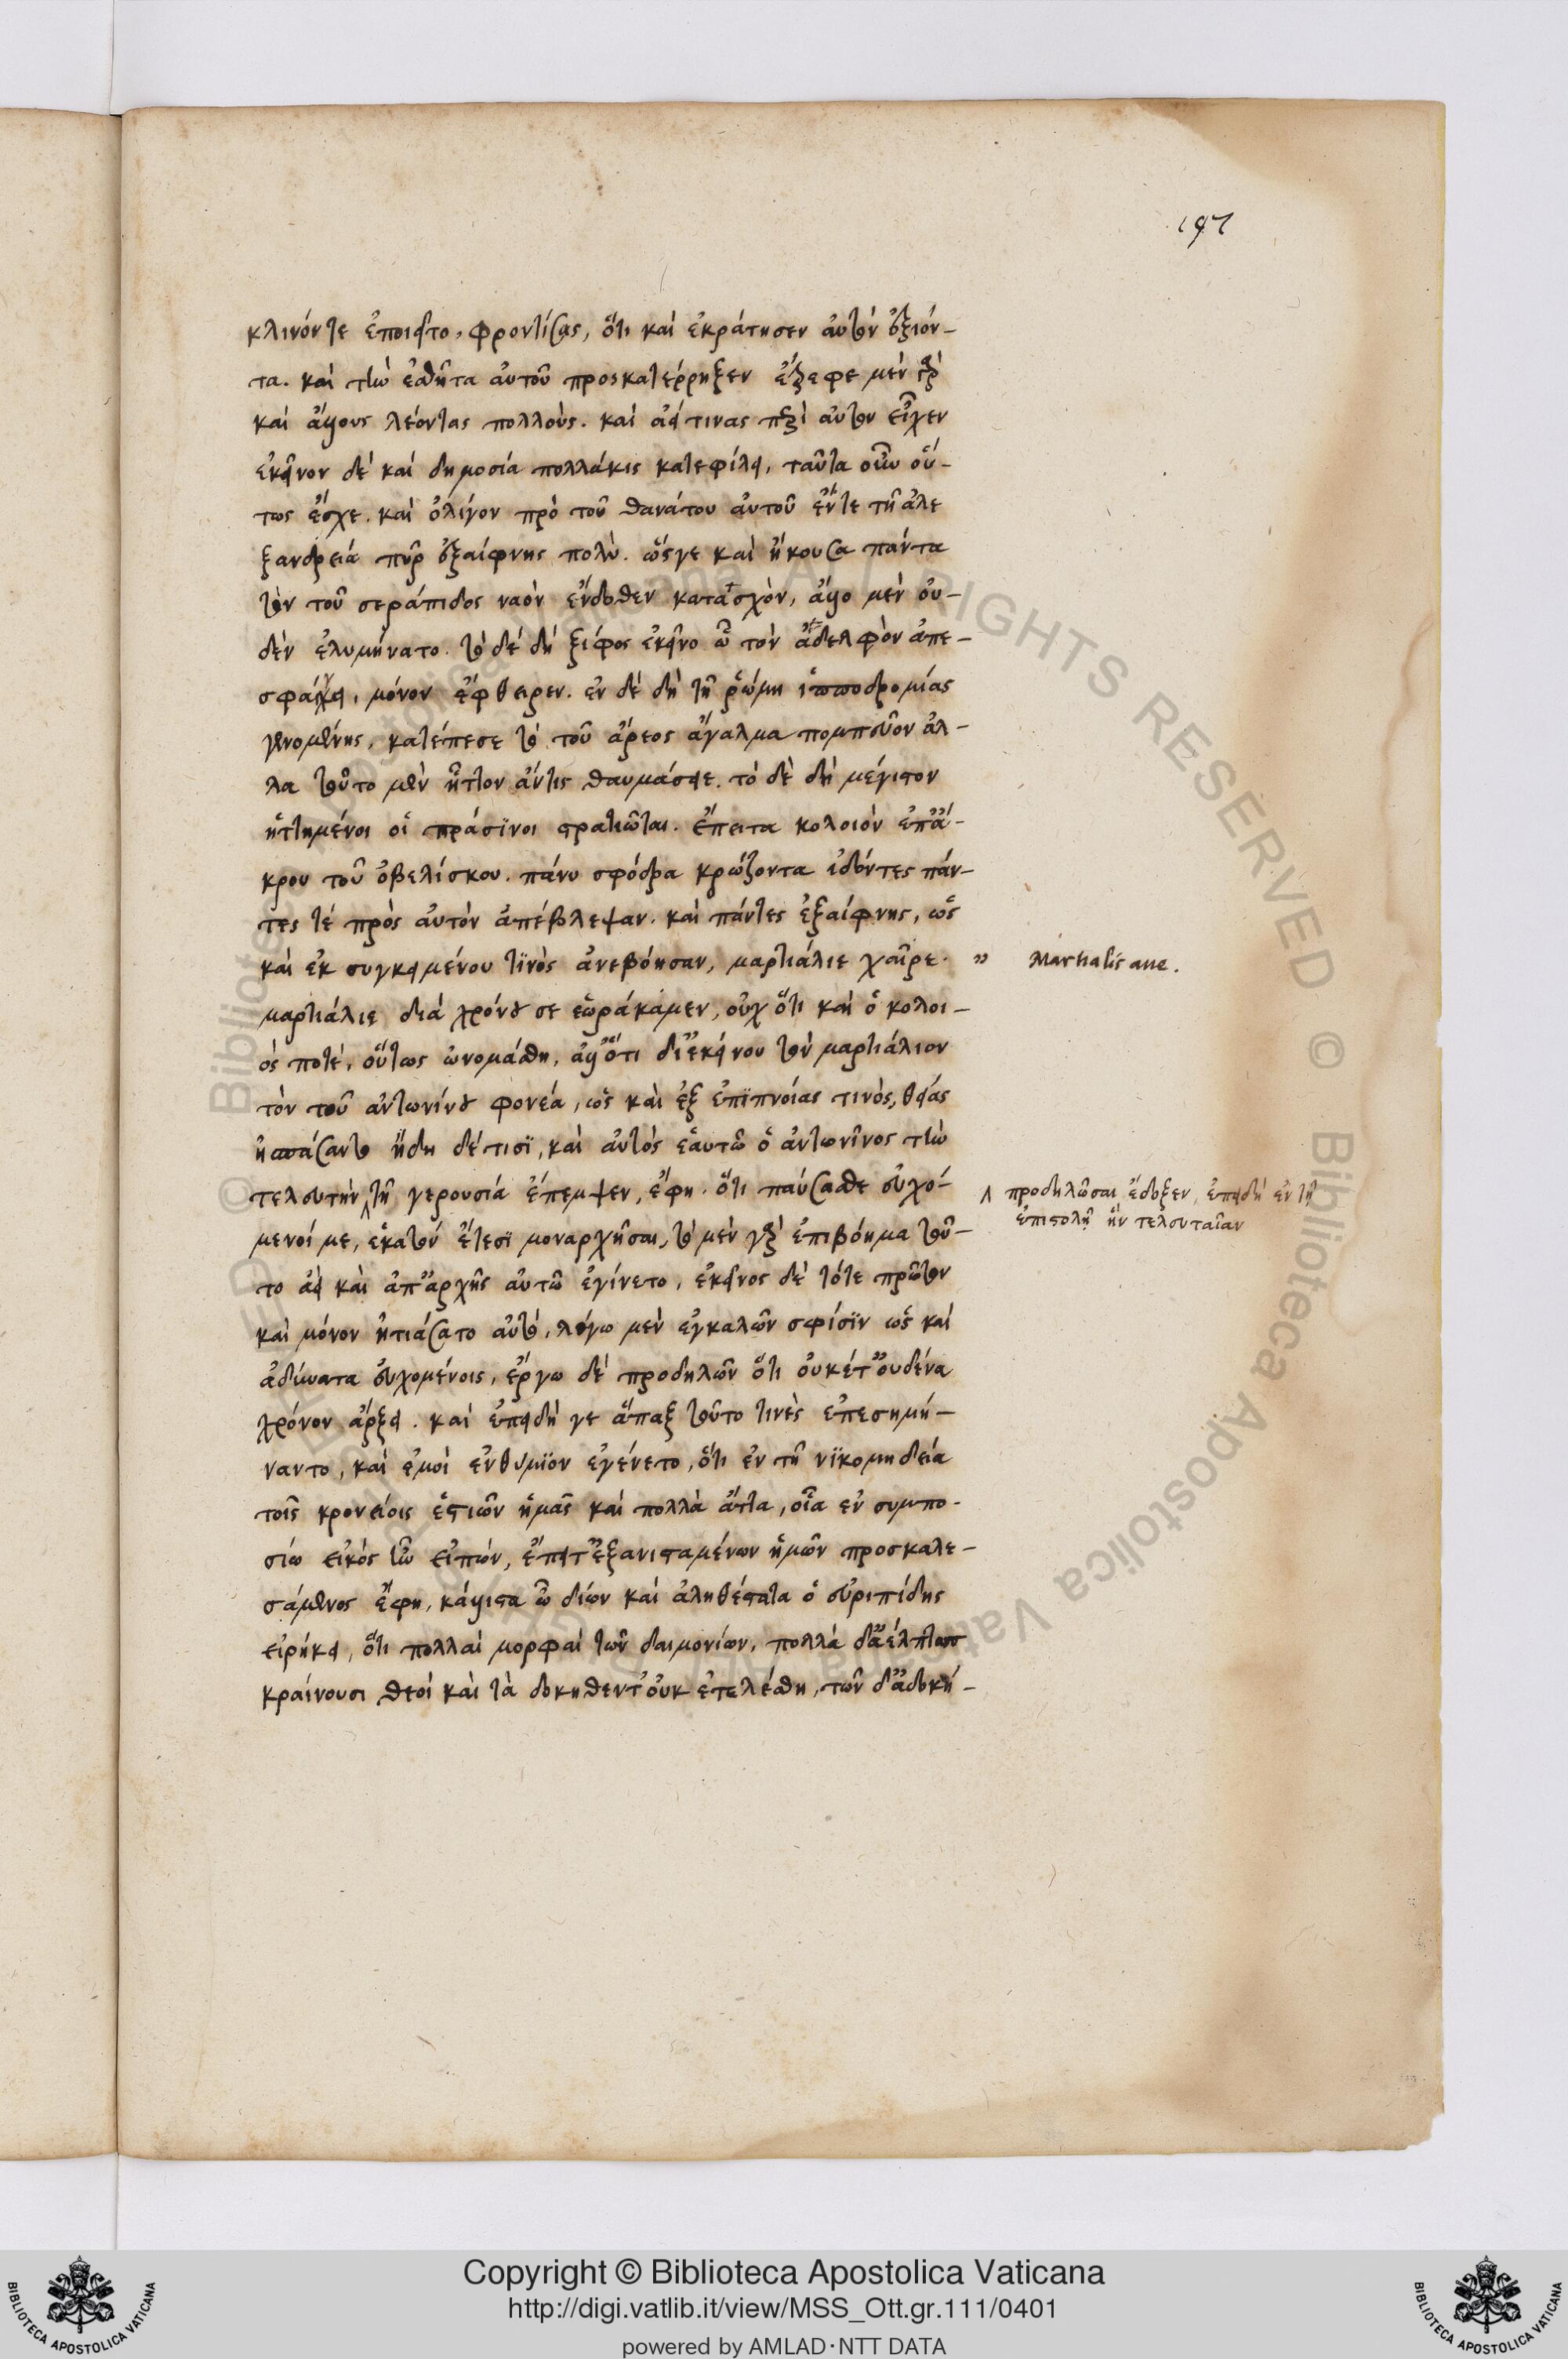 197
κλινόν τε ἐποιεῖτο, φροντίσας, ὅτι καὶ ἐκράτησεν αὐτὸν ἐξιόν-
τα. καὶ τὴν ἐσθῆτα αὐτοῦ προσκατέρρηξεν ἔτρεφε μὲν γὰρ
καὶ ἄλλους λέοντας πολλούς. καὶ ἀεί τινας περὶ αὐτὸν εἶχεν
ἐκεῖνον δὲ καὶ δημοσία πολλάκις κατεφίλει, ταῦτα οὖν οὕ-
τως ἔσχε. καὶ ὀλίγον πρὸ τοῦ θανάτου αὐτοῦ ἔν τε τῆ ἀλε
ξανδρεία πῦρ ἐξαίφνης πολύ. ὥς γε καὶ ἤκουσα πάντα
τὸν τοῦ σεράπιδος ναὸν ἔνδοθεν κατασχὸν, ἄλλο μὲν οὐ-
δὲν ἐλυμήνατο. τὸ δὲ δὴ ξίφος ἐκεῖνο ὧ τὸν ἀδελφὸν ἀπε-
σφάκει, μόνον ἔφθειρεν. ἐν δὲ δὴ τῆ ῥώμη ἱπποδρομίας
γενομένης, κατέπεσε τὸ τοῦ ἄρεος ἄγαλμα πομπεῦον ἀλ-
λα τοῦτο μὲν ἧττον ἄν τις θαυμάσειε. τὸ δὲ δὴ μέγιστον
ἡττημένοι οἱ πράσϊνοι στρατιῶται. ἔπειτα κολοιὸν ἐπ' ἄ-
κρου τοῦ ὀβελίσκου. πάνυ σφόδρα κρώζοντα ἰδόντες πάν-
τες τὲ πρὸς αὐτὸν ἀπέβλεψαν. καὶ πάντες ἐξαίφνης, ὡς
καὶ ἐκ συγκειμένου τϊνὸς ἀνεβόησαν, μαρτιάλιε χαῖρε. "
Martialis aue.
μαρτιάλιε διὰ χρόνου σε ἑωράκαμεν, οὐχ ὅτι καὶ ὁ κολοι-
ός ποτέ, οὕτως ὠνομάσθη, ἀλλ' ὅτι δι' ἐκείνου τὸν μαρτιάλιον
τὸν τοῦ ἀντωνίνου φονέα, ὡς καὶ ἐξ ἐπϊπνοίας τινὸς, θείας
ἠσπάσαντο ἤδη δέ τισϊ, καὶ αὐτὸς ἑαυτῶ ὁ ἀντωνῖνος τὴν
τελευτὴν ⁁ τῆ γερουσία ἔπεμψεν, ἔφη. ὅτι παύσασθε εὐχό-
⁁ προδηλῶσαι ἔδοξεν, ἐπειδὴ ἐν τῆ
ἐπιστολῆ ἣν τελευταίαν
μενοί με, ἑκατὸν ἔτεσϊ μοναρχῆσαι, τὸ μὲν γὰρ ἐπιβόημα τοῦ-
το ἀεὶ καὶ ἀπ' ἀρχῆς αὐτῶ ἐγίνετο, ἐκεῖνος δὲ τότε πρῶτον
καὶ μόνον ἠτιάσατο αὐτό, λόγω μὲν ἐγκαλῶν σφίσϊν ὡς καὶ
ἀδύνατα εὐχομένοις, ἔργω δὲ προδηλῶν ὅτι οὐκέτ' οὐδένα
χρόνον ἄρξει. καὶ ἐπειδή γε ἅπαξ τοῦτο τινὲς ἐπεσημή-
ναντο, καὶ ἐμοὶ ἐνθύμϊον ἐγένετο, ὅτι ἐν τῆ νϊκομηδεία
τοῖς κρονείοις ἑστιῶν ἡμᾶς καὶ πολλὰ ἄττα, οἷα ἐν συμπο-
σίω εἰκὸς ἦν εἰπών, ἔπειτ' ἐξανισταμένων ἡμῶν προσκαλε-
σάμενος ἔφη, κάλλιστα ὦ δίων καὶ ἀληθέστατα ὁ εὐριπίδης
εἰρήκει, ὅτι πολλαὶ μορφαὶ τῶν δαιμονίων, πολλὰ δ' ἀέλπτως
κραίνουσι θεοί καὶ τὰ δοκηθέντ' οὐκ ἐτελέσθη, τῶν δ' ἀδοκή-
Copyright © Biblioteca Apostolica Vaticana
http://digi.vatlib.it/view/MSS_Ott.gr.111/0401
powered by AMLAD·NTT DATA